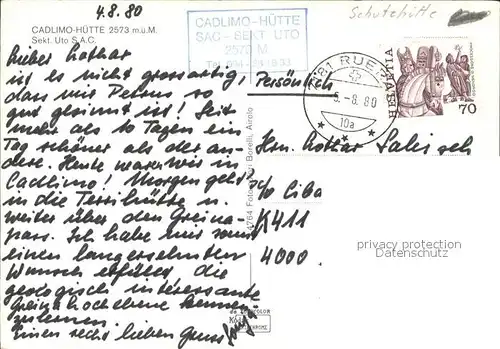 4.8.80
CADLIMO-HÜTTE 2573 m.ü.M.
Sekt. Uto S.A.C.
CADLIMO-HÜTTE
SAC - SEKT UTO
2573 M
Schutzhütte
Lieber Lothar
ist es nicht grossartig,
dass mir Petrus so
gut gesinnt ist! Seit
mehr als 10 Tagen ein
Tag schöner als der an-
dere. Heute waren wir in
Cadlimo! Morgen geht's
in die Terrihütte u.
weiter über den Greina-
pass. Ich habe mir somit
einen langersehnten
Wunsch erfüllt, die
geologisch interessante
Greinahochebene kennen
zulernen.
Einen recht lieben Gruss
Persönlich
5.-8.80
10a
HELVETIA
70
Herrn Lothar
c/o Ciba
K411
4000.
4764 Fotografia Borelli, Airolo
privacy protection
Datenschutz